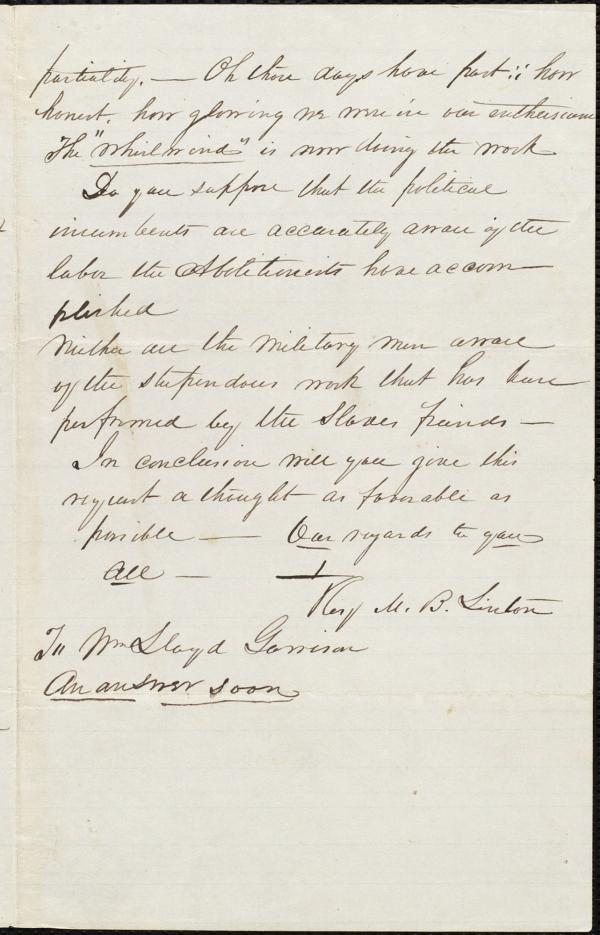 partiality. — Oh those days have past!! how
honest, how glowing we were in our enthusiasm
The "Whirlwind" is now doing the work
Do you suppose that the political
incumbents are accurately aware of the
labor the Abolitionists have accom-
plished
Neither are the military men aware
of the stupendous work that has been
performed by the Slaves friends —
In conclusion will you give this
request a thought as favorable as
possible — Our regards to you
all —
Resy M. B. Linton
To Wm Lloyd Garrison
An answer soon